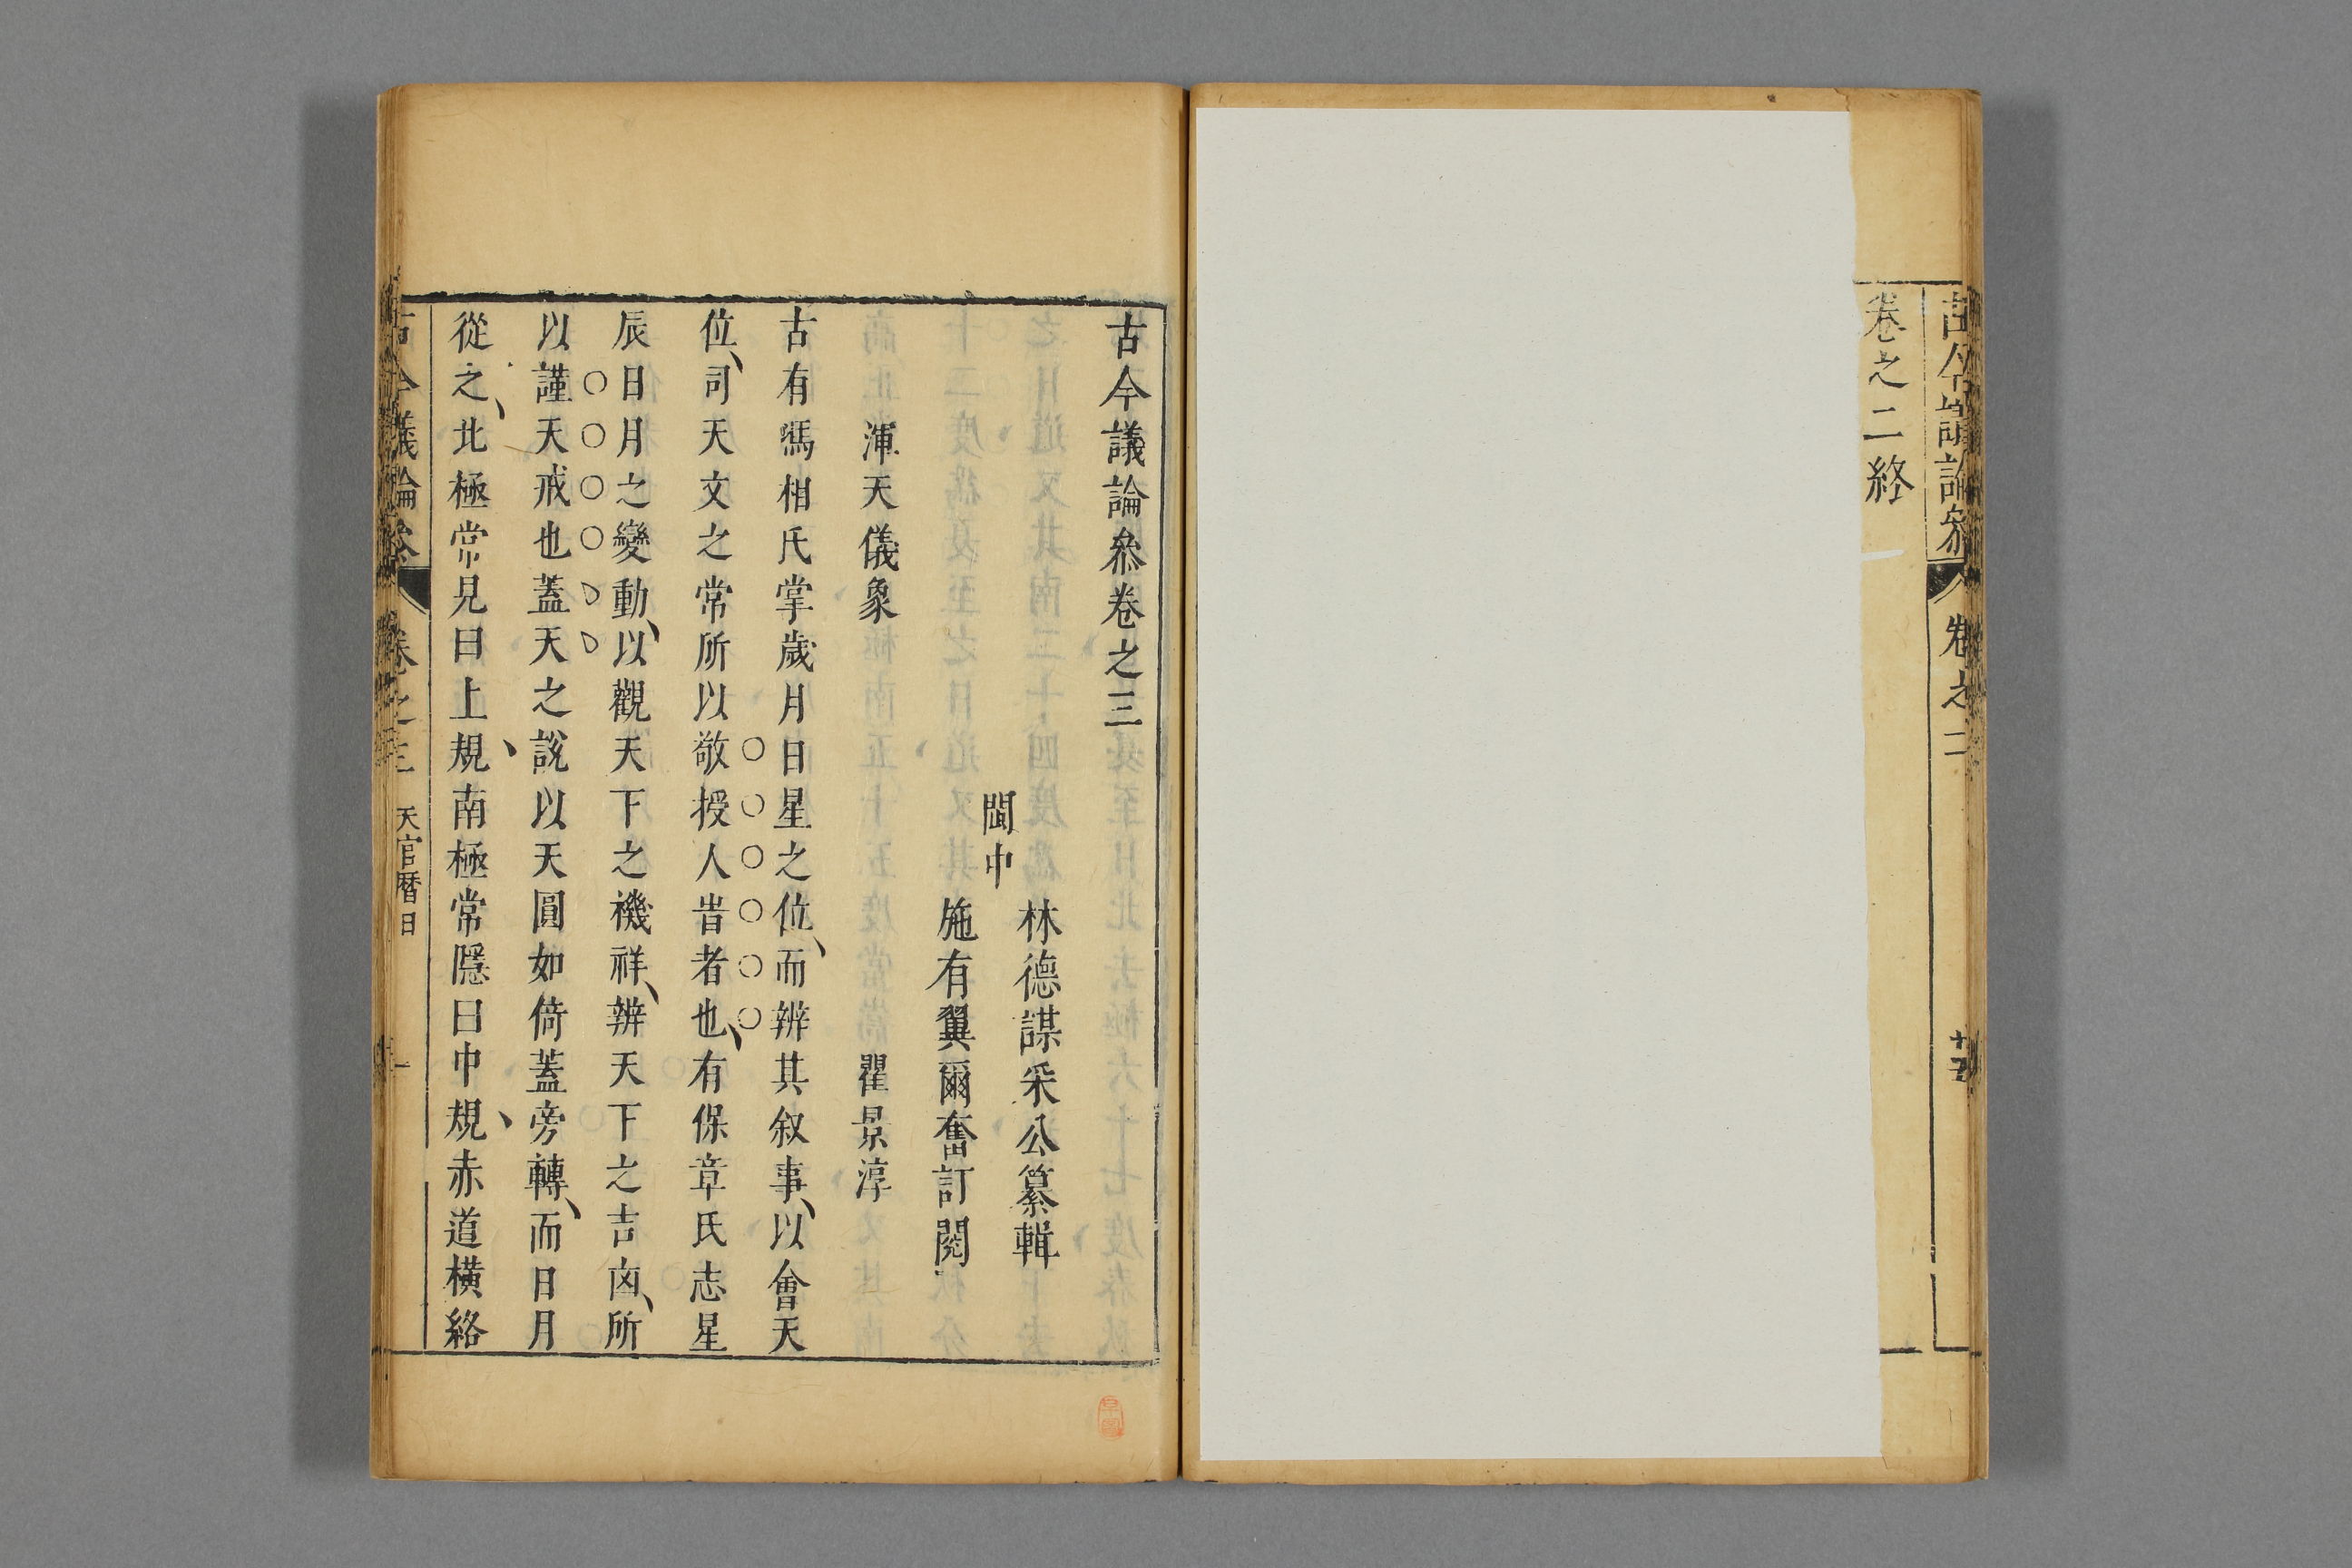 古今議論
卷之二
卷之二終
古今議論叅卷之三
林德謀采公纂輯
閩中
施有翼爾奮訂閱
渾天儀象
瞿景淳
古有馮相氏掌歲月日星之位、而辨其叙事、以會天
位、司天文之常所以敬授人旹者也、有保章氏志星
辰日月之變動、以觀天下之禨祥、辨天下之吉凶、所
以謹天戒也蓋天之說以天圓如倚蓋旁轉、而日月
從之、北極常見曰上規、南極常隱曰中規、赤道橫絡
古今議論叅
卷之三
天官曆日
一